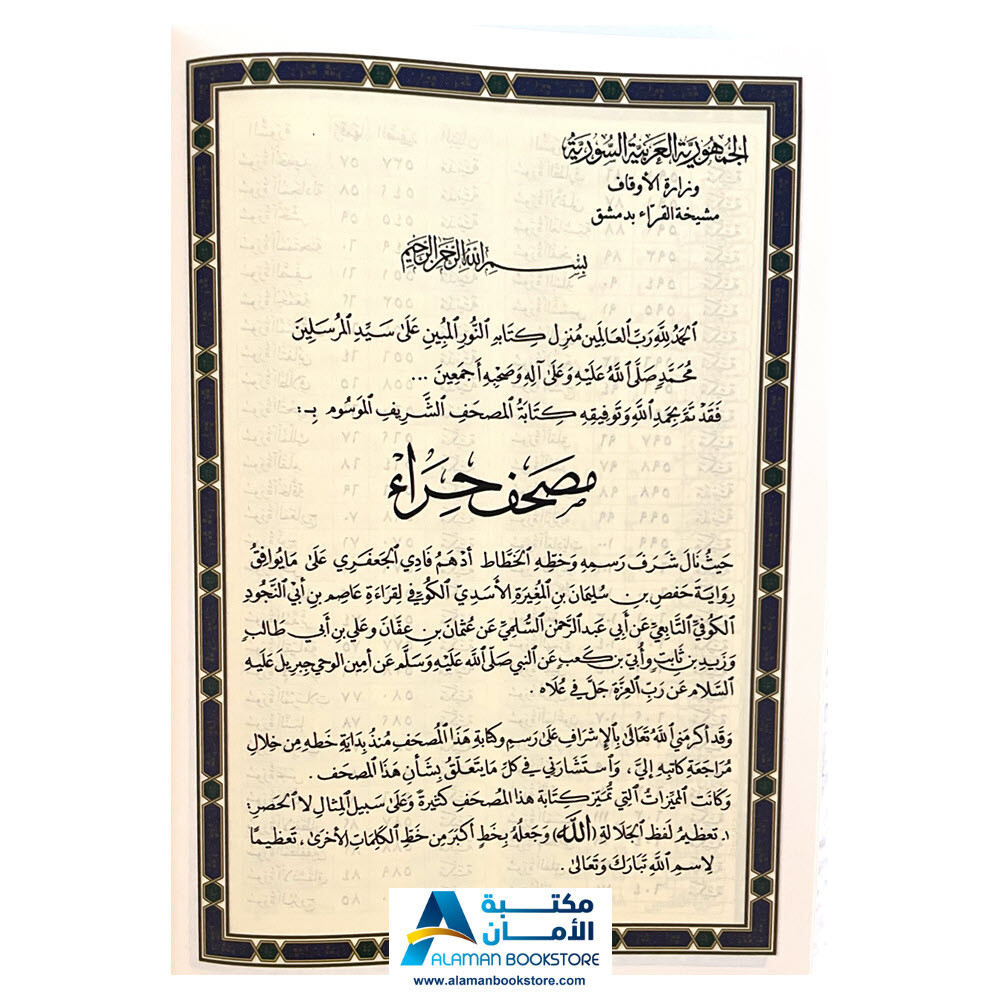 الجمهورية العربية السورية
وزارة الأوقاف
مشيخة القرّاء بدمشق
بسم الله الرحمن الرحيم
الحَمدُ لِلَّهِ رَبِّ العَالَمِين مُنزِل كِتَابِهِ النُّورِ المُبِينِ عَلَى سَيِّدِ المُرسَلِينَ
مُحَمَّدٍ صَلَّى اللَّهُ عَلَيْهِ وَعَلَى آلِهِ وَصَحْبِهِ أَجمَعِينَ ...
فَقَدْ تَمَّ بِحَمدِ اللَّهِ وَتَوفِيقِهِ كِتَابَةُ المصحَفِ الشَّرِيفِ المَوسُوم بِـ :
مصحف حِرَاء
حَيثُ نَالَ شَرَفَ رَسمِهِ وَخطِّهِ الخَطَّاط أدهَم فَادِي الجَعفَرِي عَلَى مَا يُوَافِقُ
رِوَايَةَ حَفص بنِ سُلِيمَانَ بنِ المُغِيرَةِ الأَسَدِيِّ الكُوفِي لِقرَاءَةِ عَاصِمِ بنِ أبِي النَّجُودِ
الكُوفِيِّ التَّابِعِيِّ عَن أبِي عَبدِ الرَّحمٰنِ السُّلمِيِّ عَن عُثمَانَ بنِ عَفَّانَ وعَلي بنِ أبِي طَالبٍ
وَزَيدِ بنِ ثَابِتٍ وأُبَيّ بنِ كَعبٍ عَنِ النبي صَلَّى اللَّه عَلَيْهِ وَسَلَّم عَن أمِينِ الوَحيِ جِبرِيلَ عَلَيهِ
السَّلَام عَن رَبِّ العِزَّةِ جَلَّ فِي عُلَاه .
وَقَد أكرَمَنِي اللَّهُ تَعَالَى بِالإشرَافِ عَلَى رَسمِ وكتَابةِ هَذَا المُصحَفِ مُنذُ بِدَايَةِ خَطهِ مِن خِلَالِ
مُرَاجَعَةِ كاتِبِهِ إليَّ، وَاستَشَارَنِي في كلِّ مَا يتعَلقُ بِشَأنِ هَذَا المصحَف .
وَكَانَت المميّزاتُ التي تُمَيّز كِتَابة هذا المُصحَفِ كَثيرةً وَعَلَى سَبيلِ المِثَالِ لا الحَصرِ:
١. تَعظِيمُ لَفظِ الجَلالَةِ (اللَّه) وَجَعلُهُ بِخَطٍ أكبَرَ مِن خَطِّ الكَلِمَاتِ الأُخرَى، تَعظِيمًا
لِاسمِ اللَّهِ تَبَارَكَ وَتَعَالَى .
مكتبة
الأمان
ALAMAN BOOKSTORE
www.alamanbookstore.com